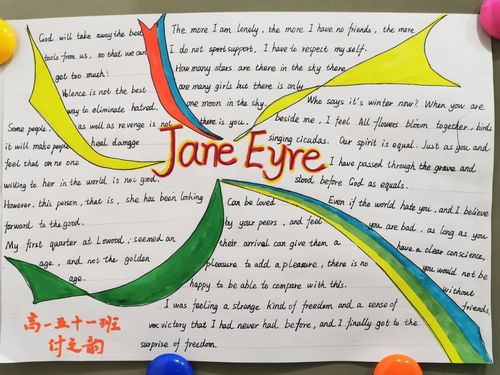 God will take away the best
tools from us, so that we can
get too much!
Violence is not the best
way to eliminate hatred.
as well as revenge is not
heal damage
Some people.
it will make people
feel that on no one
willing to her in the world is no good.
However, this person, that is, she has been looking
forward to the good.
My first quarter at Lowood, seemed an
age, and not the golden
age.
The more I am lonely, the more I have no friends, the more
I do not sport support, I have to respect myself.
How many stars are there in the sky there
are many girls but there is only
one moon in the sky.
there is you.
Who says it's winter now? When you are
beside me, I feel. All flowers bloom together, birds
singing cicadas. Our spirit is equal. Just as you and
I have passed through the grave and
stood before God as equals.
Jane Eyre
Can be loved
by your peers, and feel
their arrival can give them a
pleasure to add a pleasure, there is no
happy to be able to compare with this.
Even if the world hate you, and I believe
you are bad. as long as you
have a clear conscience,
you would not be
without
friends,
I was feeling a strange kind of freedom and a sense of
victory that I had never had before, and I finally got to the
surprise of freedom.
高一五十一班
付之韵